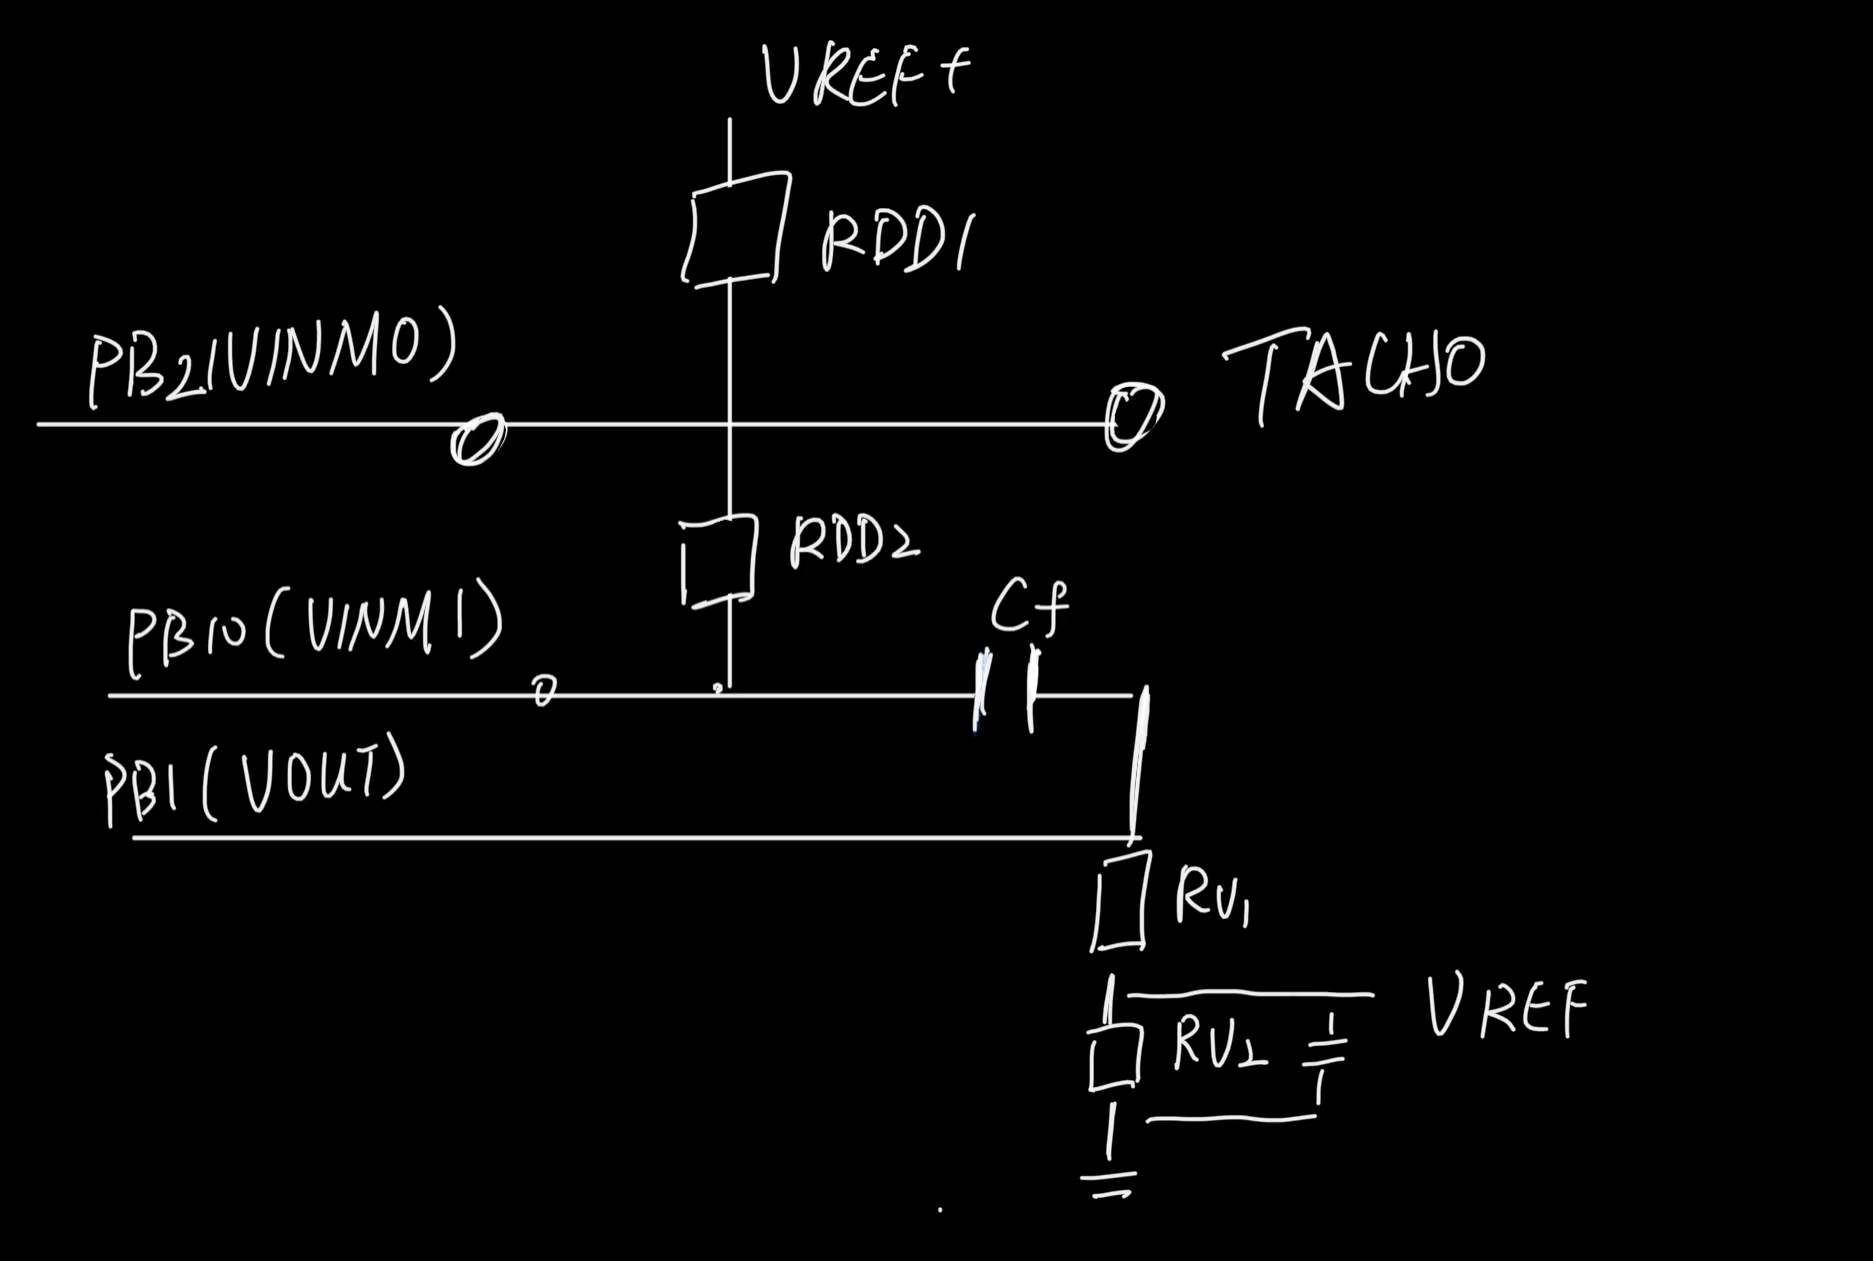 VREF+
RDD1
PB2(VINM0)
TACHO
RDD2
Cf
PB10(VINM1)
PB1(VOUT)
RV1
VREF
RV2